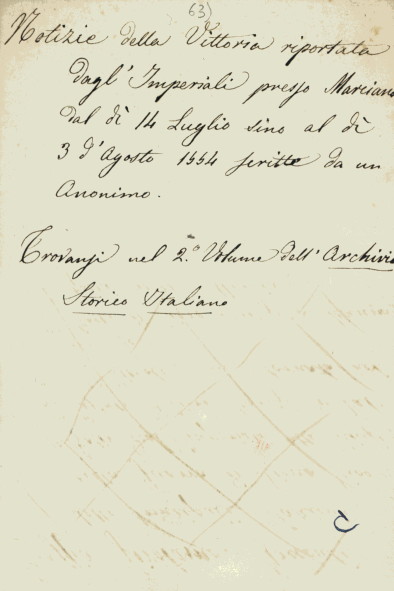 63)
Notizie della Vittoria riportata
dagl' Imperiali presso Marciano
dal dì 14 Luglio sino al dì
3 d'Agosto 1554 scritte da un
Anonimo.
Trovansi nel 2.º Volume dell' Archivio
Storico Italiano